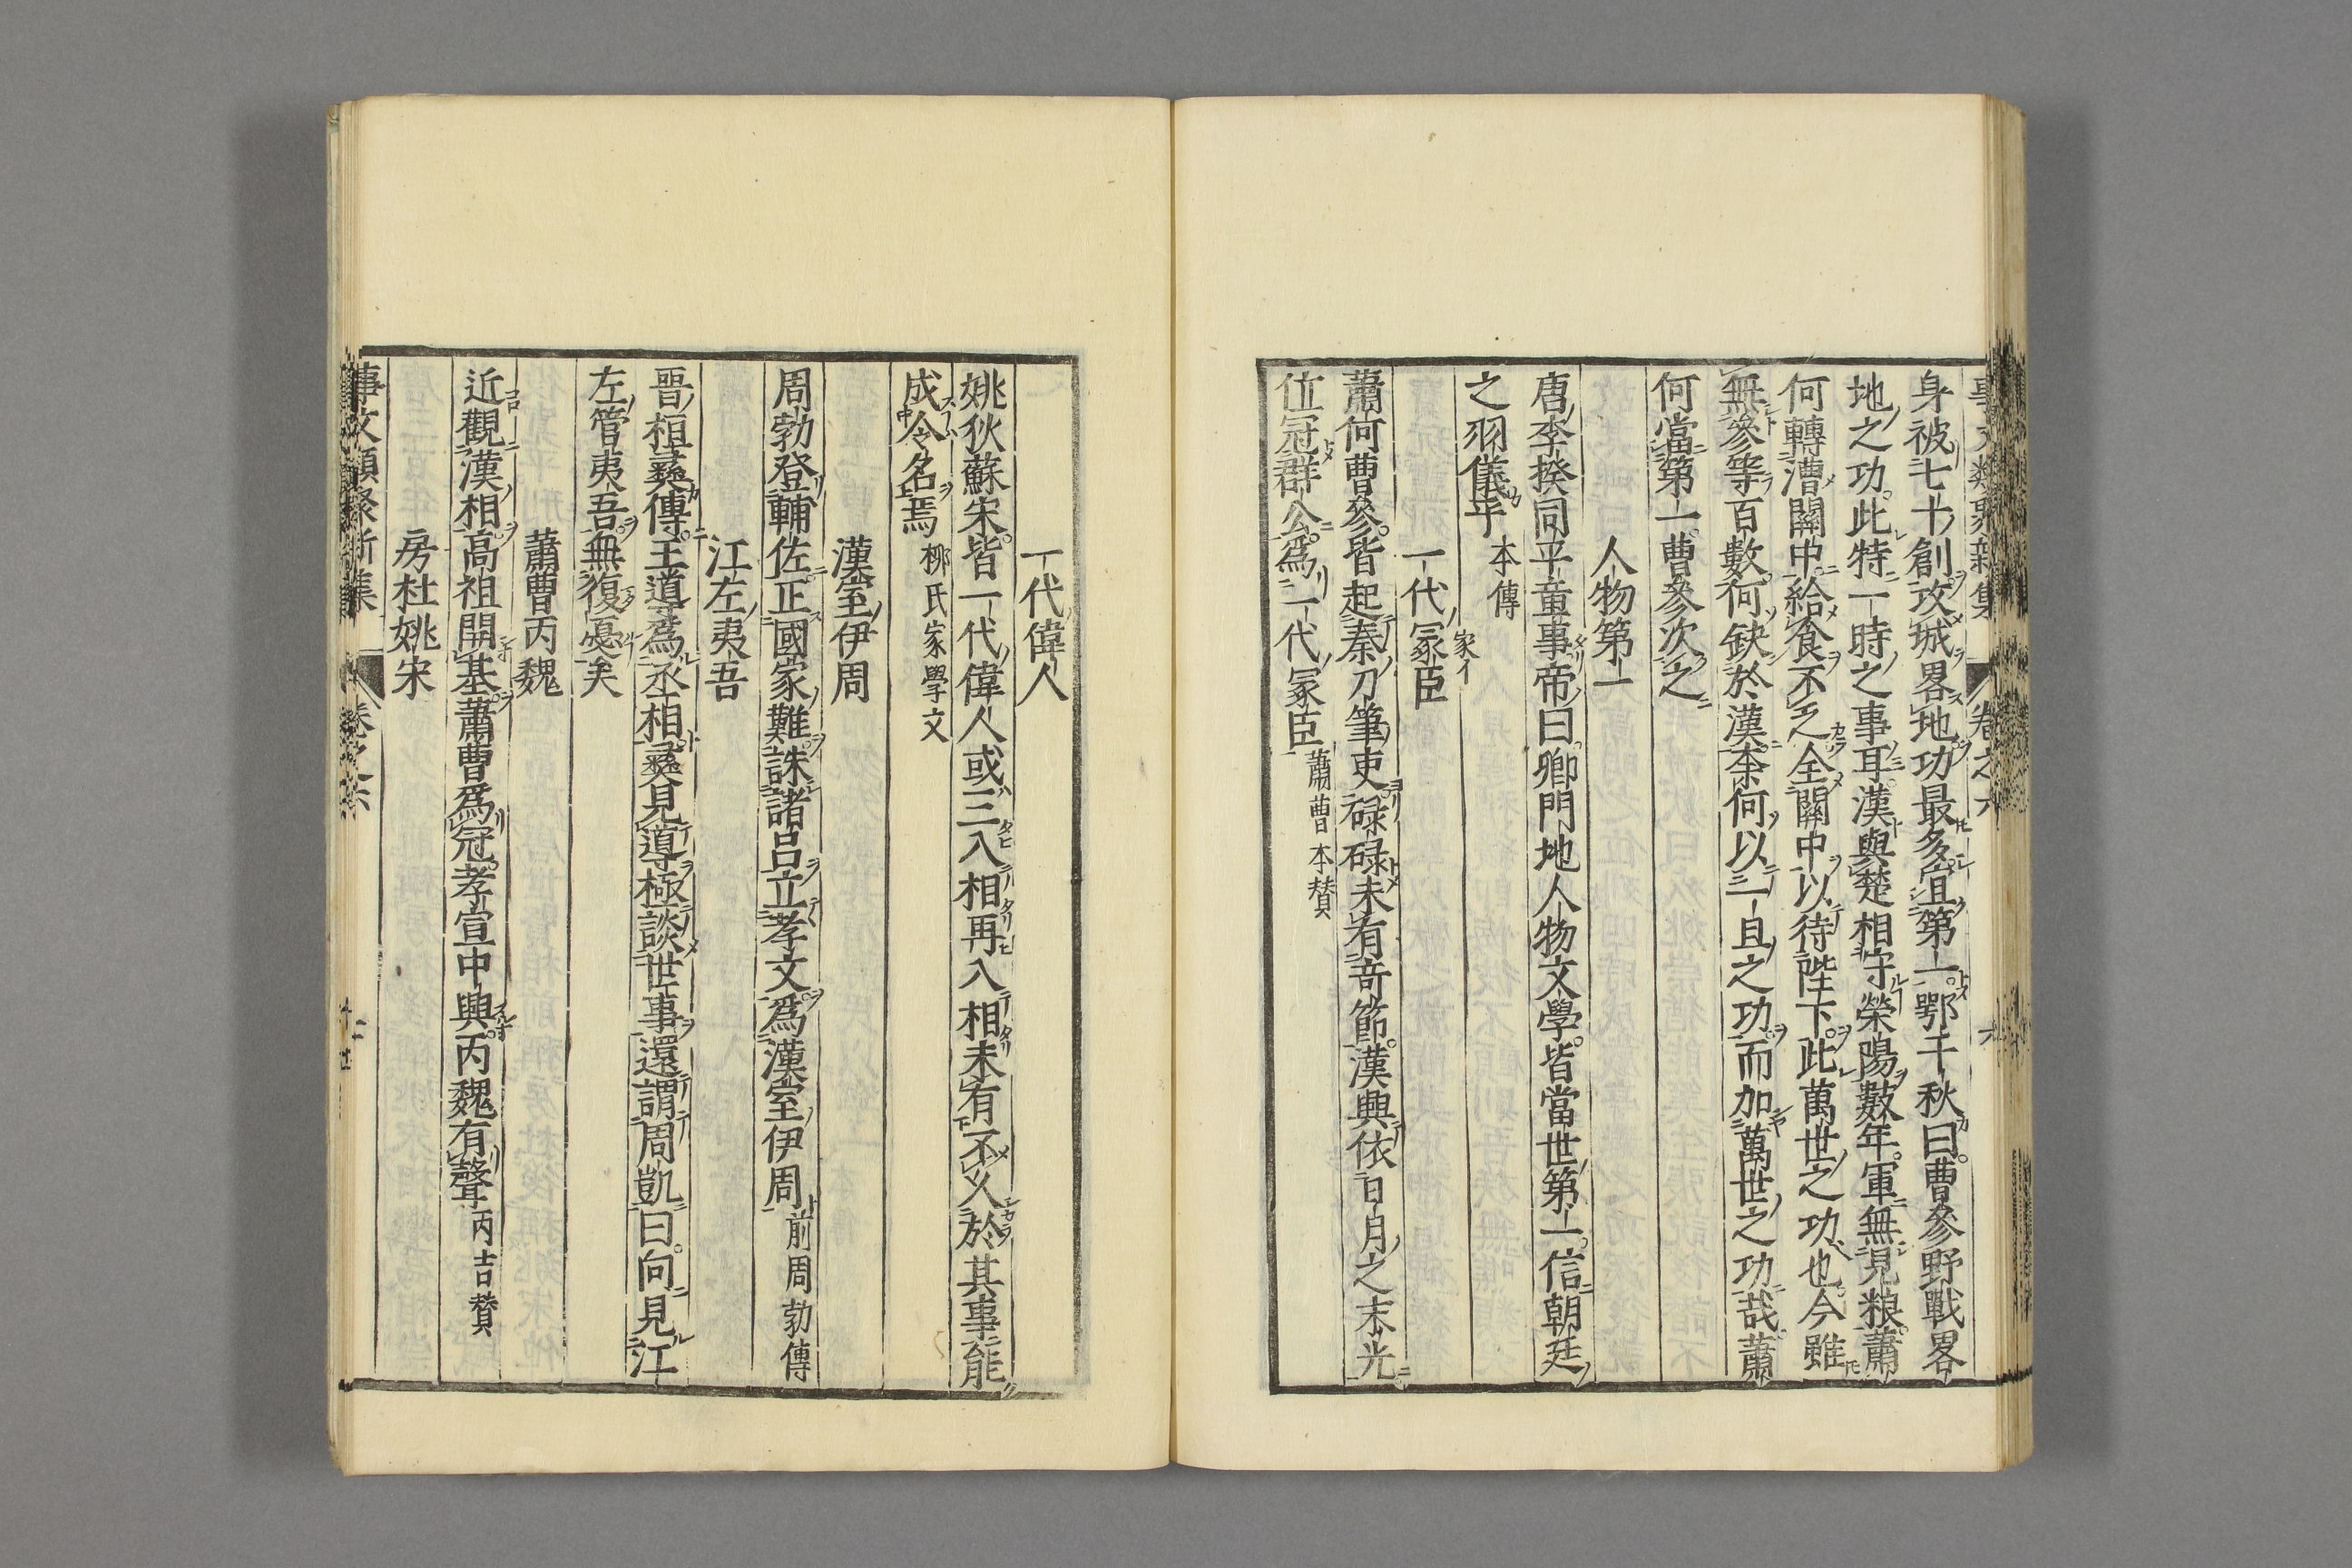 身被七十創攻城畧地功最多宜第一鄂千秋曰曹參野戰畧
地之功此特一時之事耳漢與楚相守榮陽數年軍無見粮蕭
何轉漕關中給食不乏全關中以待陛下此萬世之功也今雖
無參等百數何缺於漢柰何以一旦之功而加萬世之功哉蕭
何當第一曹參次之
人物第一
唐李揆同平章事帝曰卿門地人物文學皆當世第一信朝廷
之羽儀乎 本傳
一代冡臣
蕭何曹參皆起秦刀筆吏碌碌未有竒節漢興依日月之末光
位冠群公爲一代冡臣 蕭曹本賛
一代偉人
姚狄蘇宋皆一代偉人或三入相再入相未有不乂於其事能
成令名焉 栁氏家學文
漢室伊周
周勃登輔佐正國家難誅諸呂立孝文爲漢室伊周 前周勃傳
江左夷吾
晋桓彛傳王導爲丞相彛見導極談世事還謂周凱曰向見江
左管夷吾無復憂矣
蕭曹丙魏
近觀漢相高祖開基蕭曹爲冠孝宣中興丙魏有聲 丙吉賛
房杜姚宋